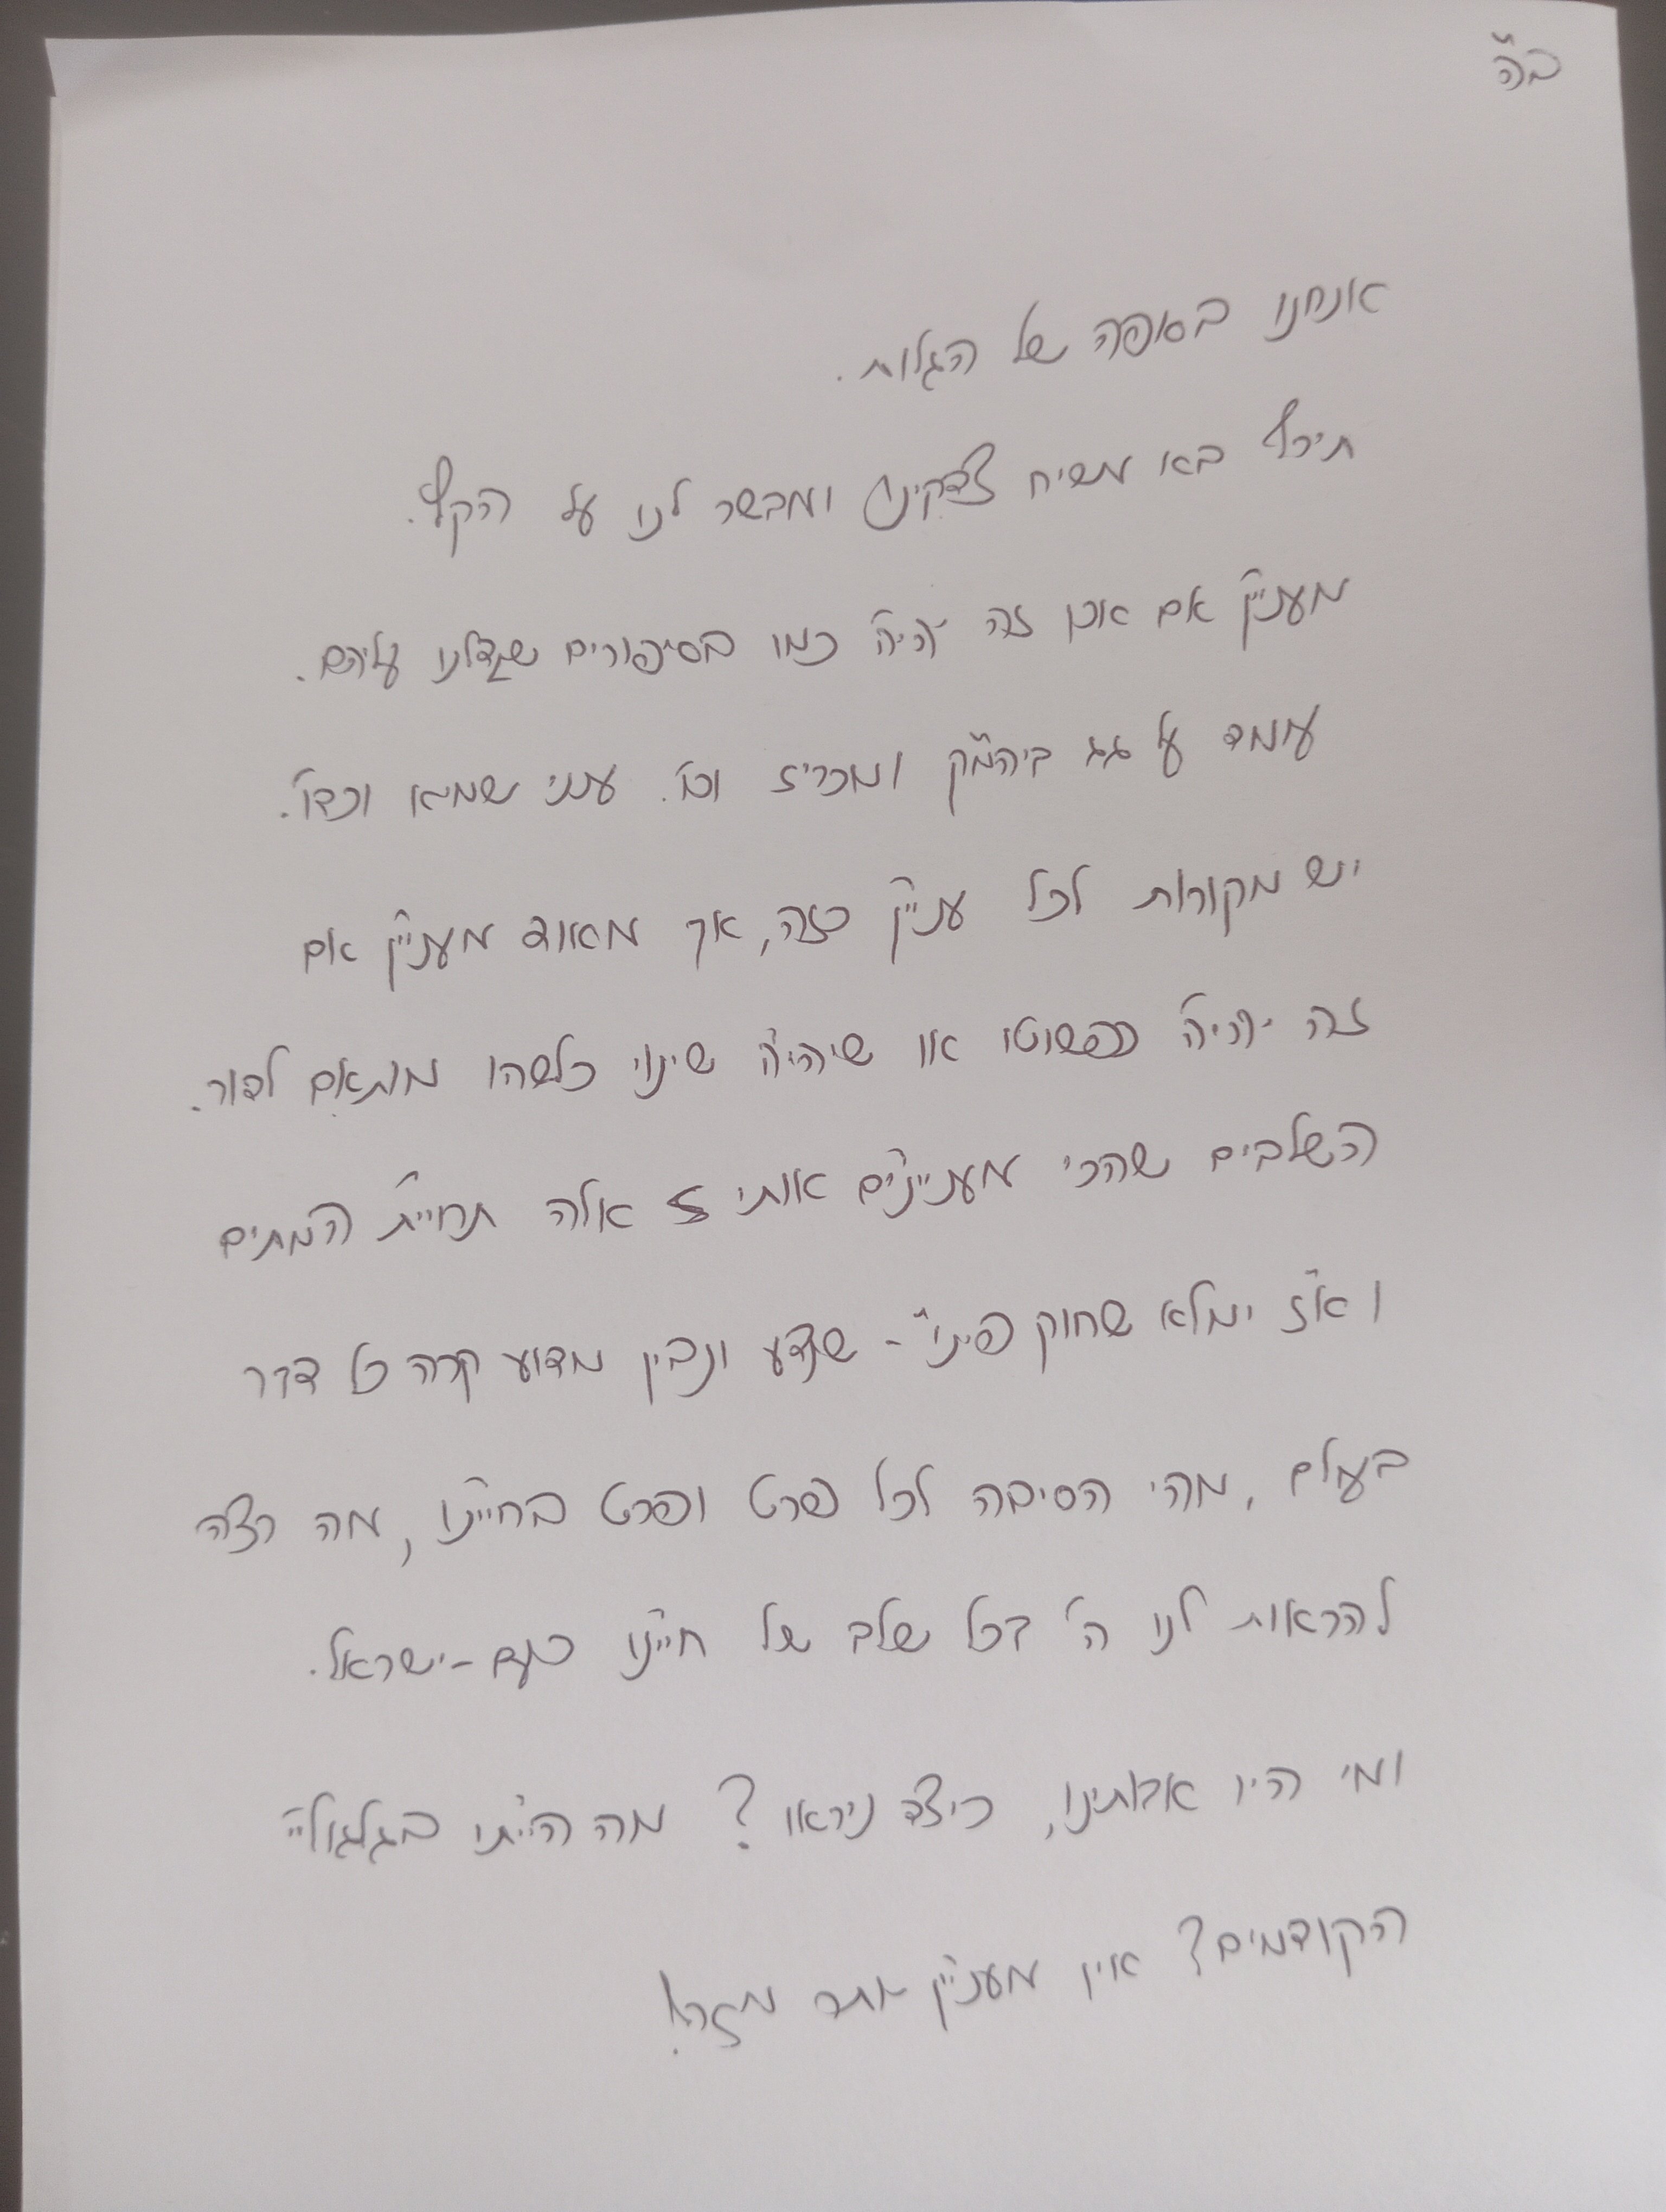 ב"ה
אנחנו בסופה של הגלות.
תיכף בא משיח צדקינו ומבשר לנו על הקץ.
מעניין אם אכן זה יהיה כמו בסיפורים שגדלנו עליהם.
עומד על גג ביהמ"ק ומכריז וכו'. ענני שמיא וכדו'.
יש מקורות לכל עניין כזה, אך מאוד מעניין אם
זה יהיה כפשוטו או שיהיה שינוי כלשהו מותאם לדור.
השלבים שהכי מעניינים אותי אלה תחיית המתים
ו"אז ימלא שחוק פינו" - שנדע ונבין מדוע קרה כל דבר
בעולם, מהי הסיבה לכל פרט ופרט בחיינו, מה רצה
להראות לנו ה' בכל שלב של חיינו כעם-ישראל.
ומי היו אבותינו, כיצד ניראו? מה הייתי בגלגוליי
הקודמים? אין מעניין יותר מזה!